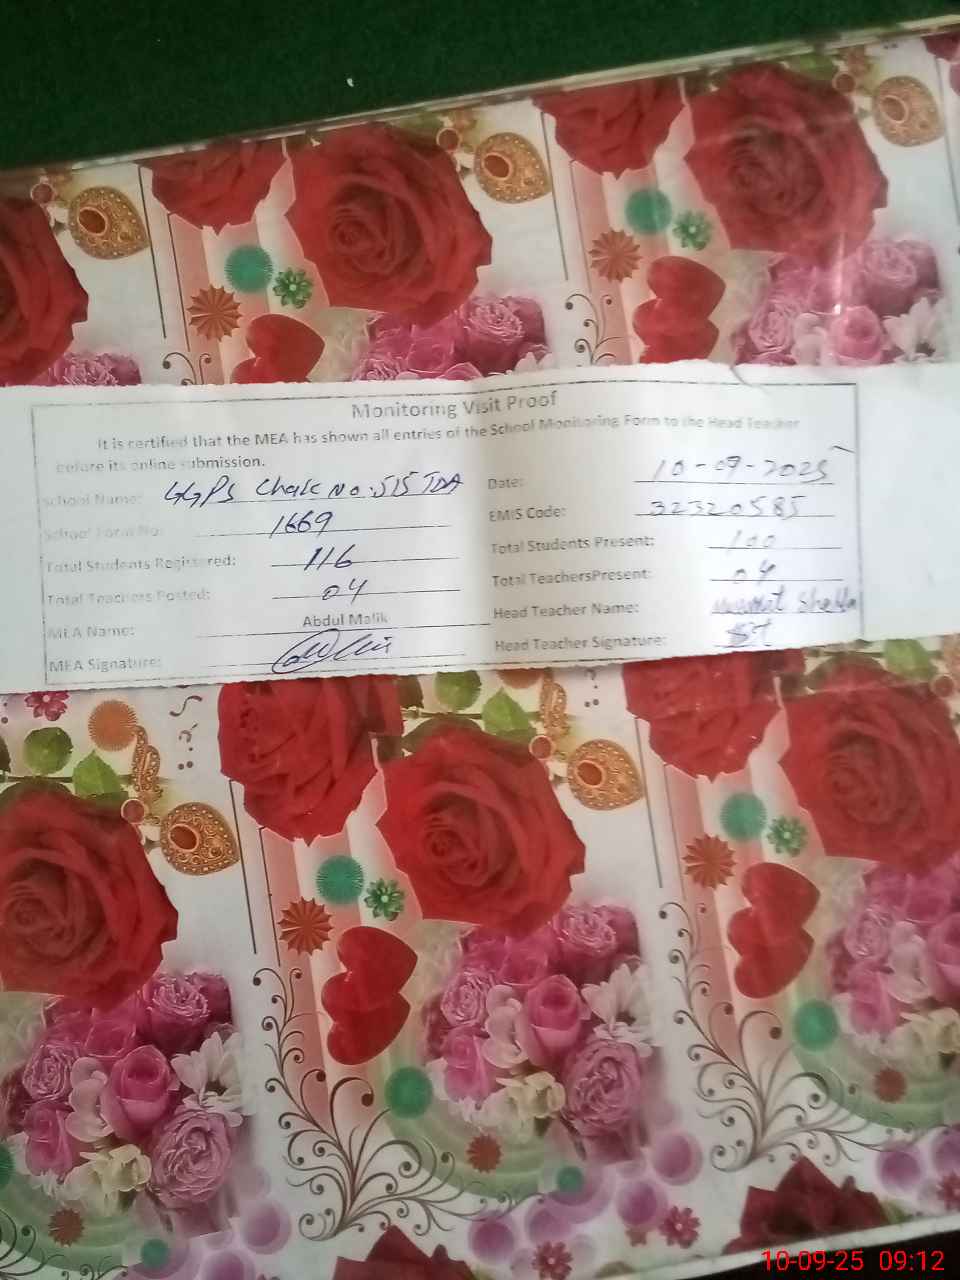 Monitoring Visit Proof
It is certified that the MEA has shown all entries of the School Monitoring Form to the Head Teacher
before its online submission.
School Name: GGPS Chak No. 515 TDA Date: 10-09-2025
School Form No: 1669 EMIS Code: 32320585
Total Students Registered: 116 Total Students Present: 100
Total Teachers Posted: 04 Total TeachersPresent: 04
MEA Name: Abdul Malik Head Teacher Name:
MEA Signature: Head Teacher Signature:
10-09-25 09:12